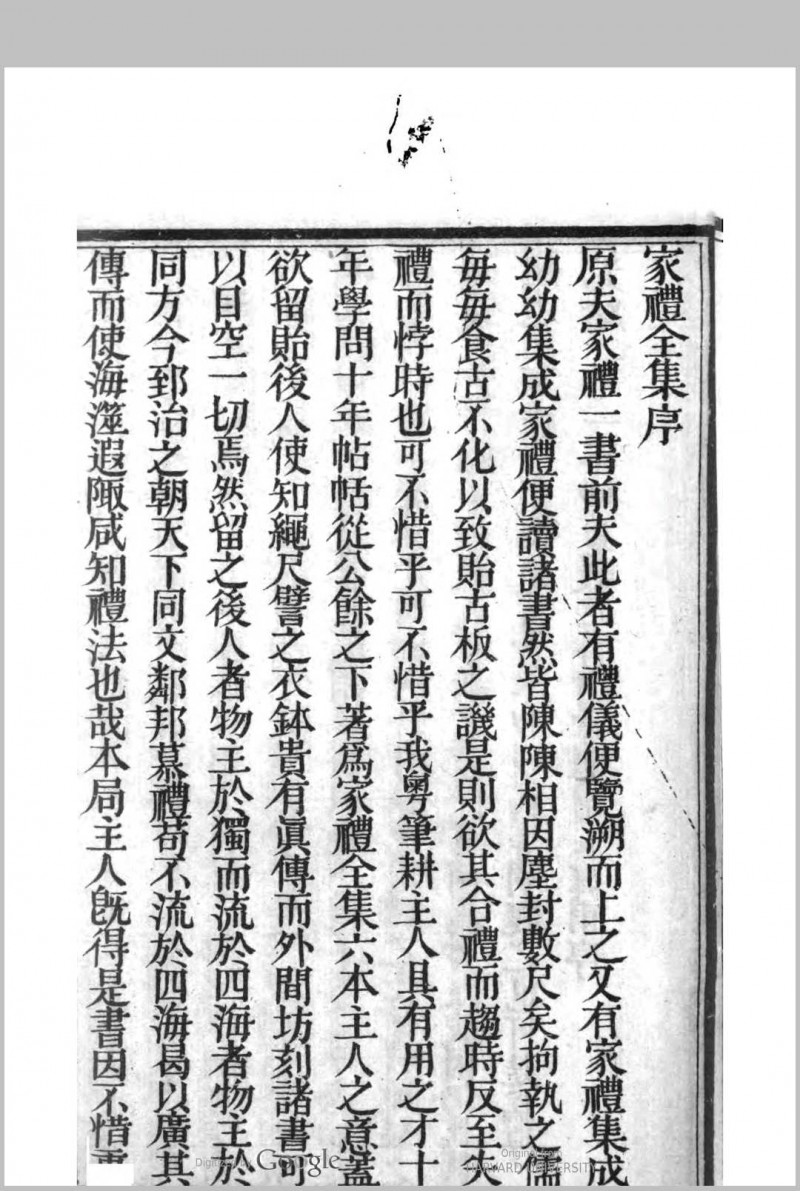 家禮全集序
原夫家禮一書前夫此者有禮儀便覽溯而上之又有家禮集成
幼幼集成家禮便讀諸書然皆陳陳相因塵封數尺矣拘執之儒
每每食古不化以致貽古板之譏是則欲其合禮而趨時反至失
禮而悖時也可不惜乎可不惜乎我粵筆耕主人具有用之才十
年學問十年帖括從公餘之下著爲家禮全集六本主人之意蓋
欲留貽後人使知繩尺譬之衣鉢貴有眞傳而外間坊刻諸書可
以目空一切焉然留之後人者物主於獨而流於四海者物主於
同方今郅治之朝天下同文鄰邦慕禮苟不流於四海曷以廣其
傳而使海澨遐陬咸知禮法也哉本局主人旣得是書因不惜重
Digitized by Google
Original from
HARVARD UNIVERSITY